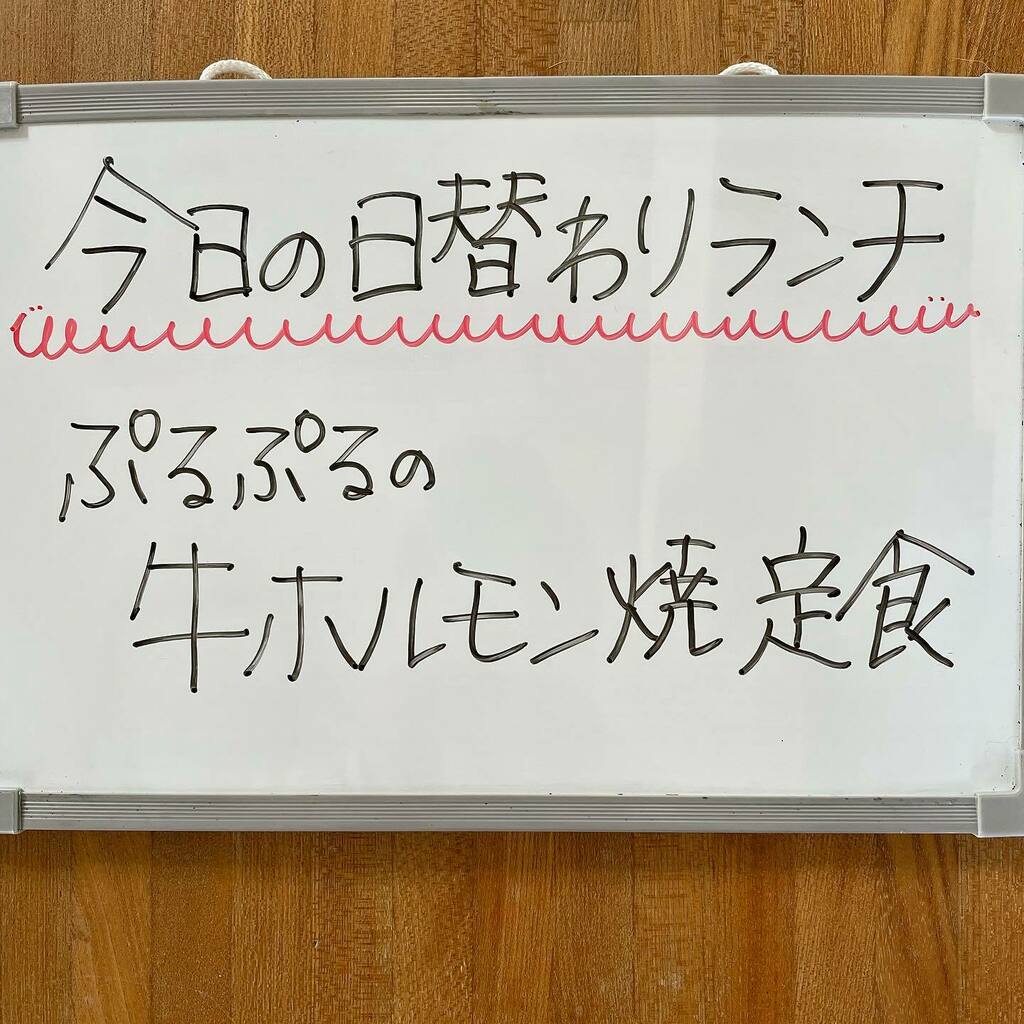 今日の日替わりランチ
ぷるぷるの
牛ホルモン焼定食